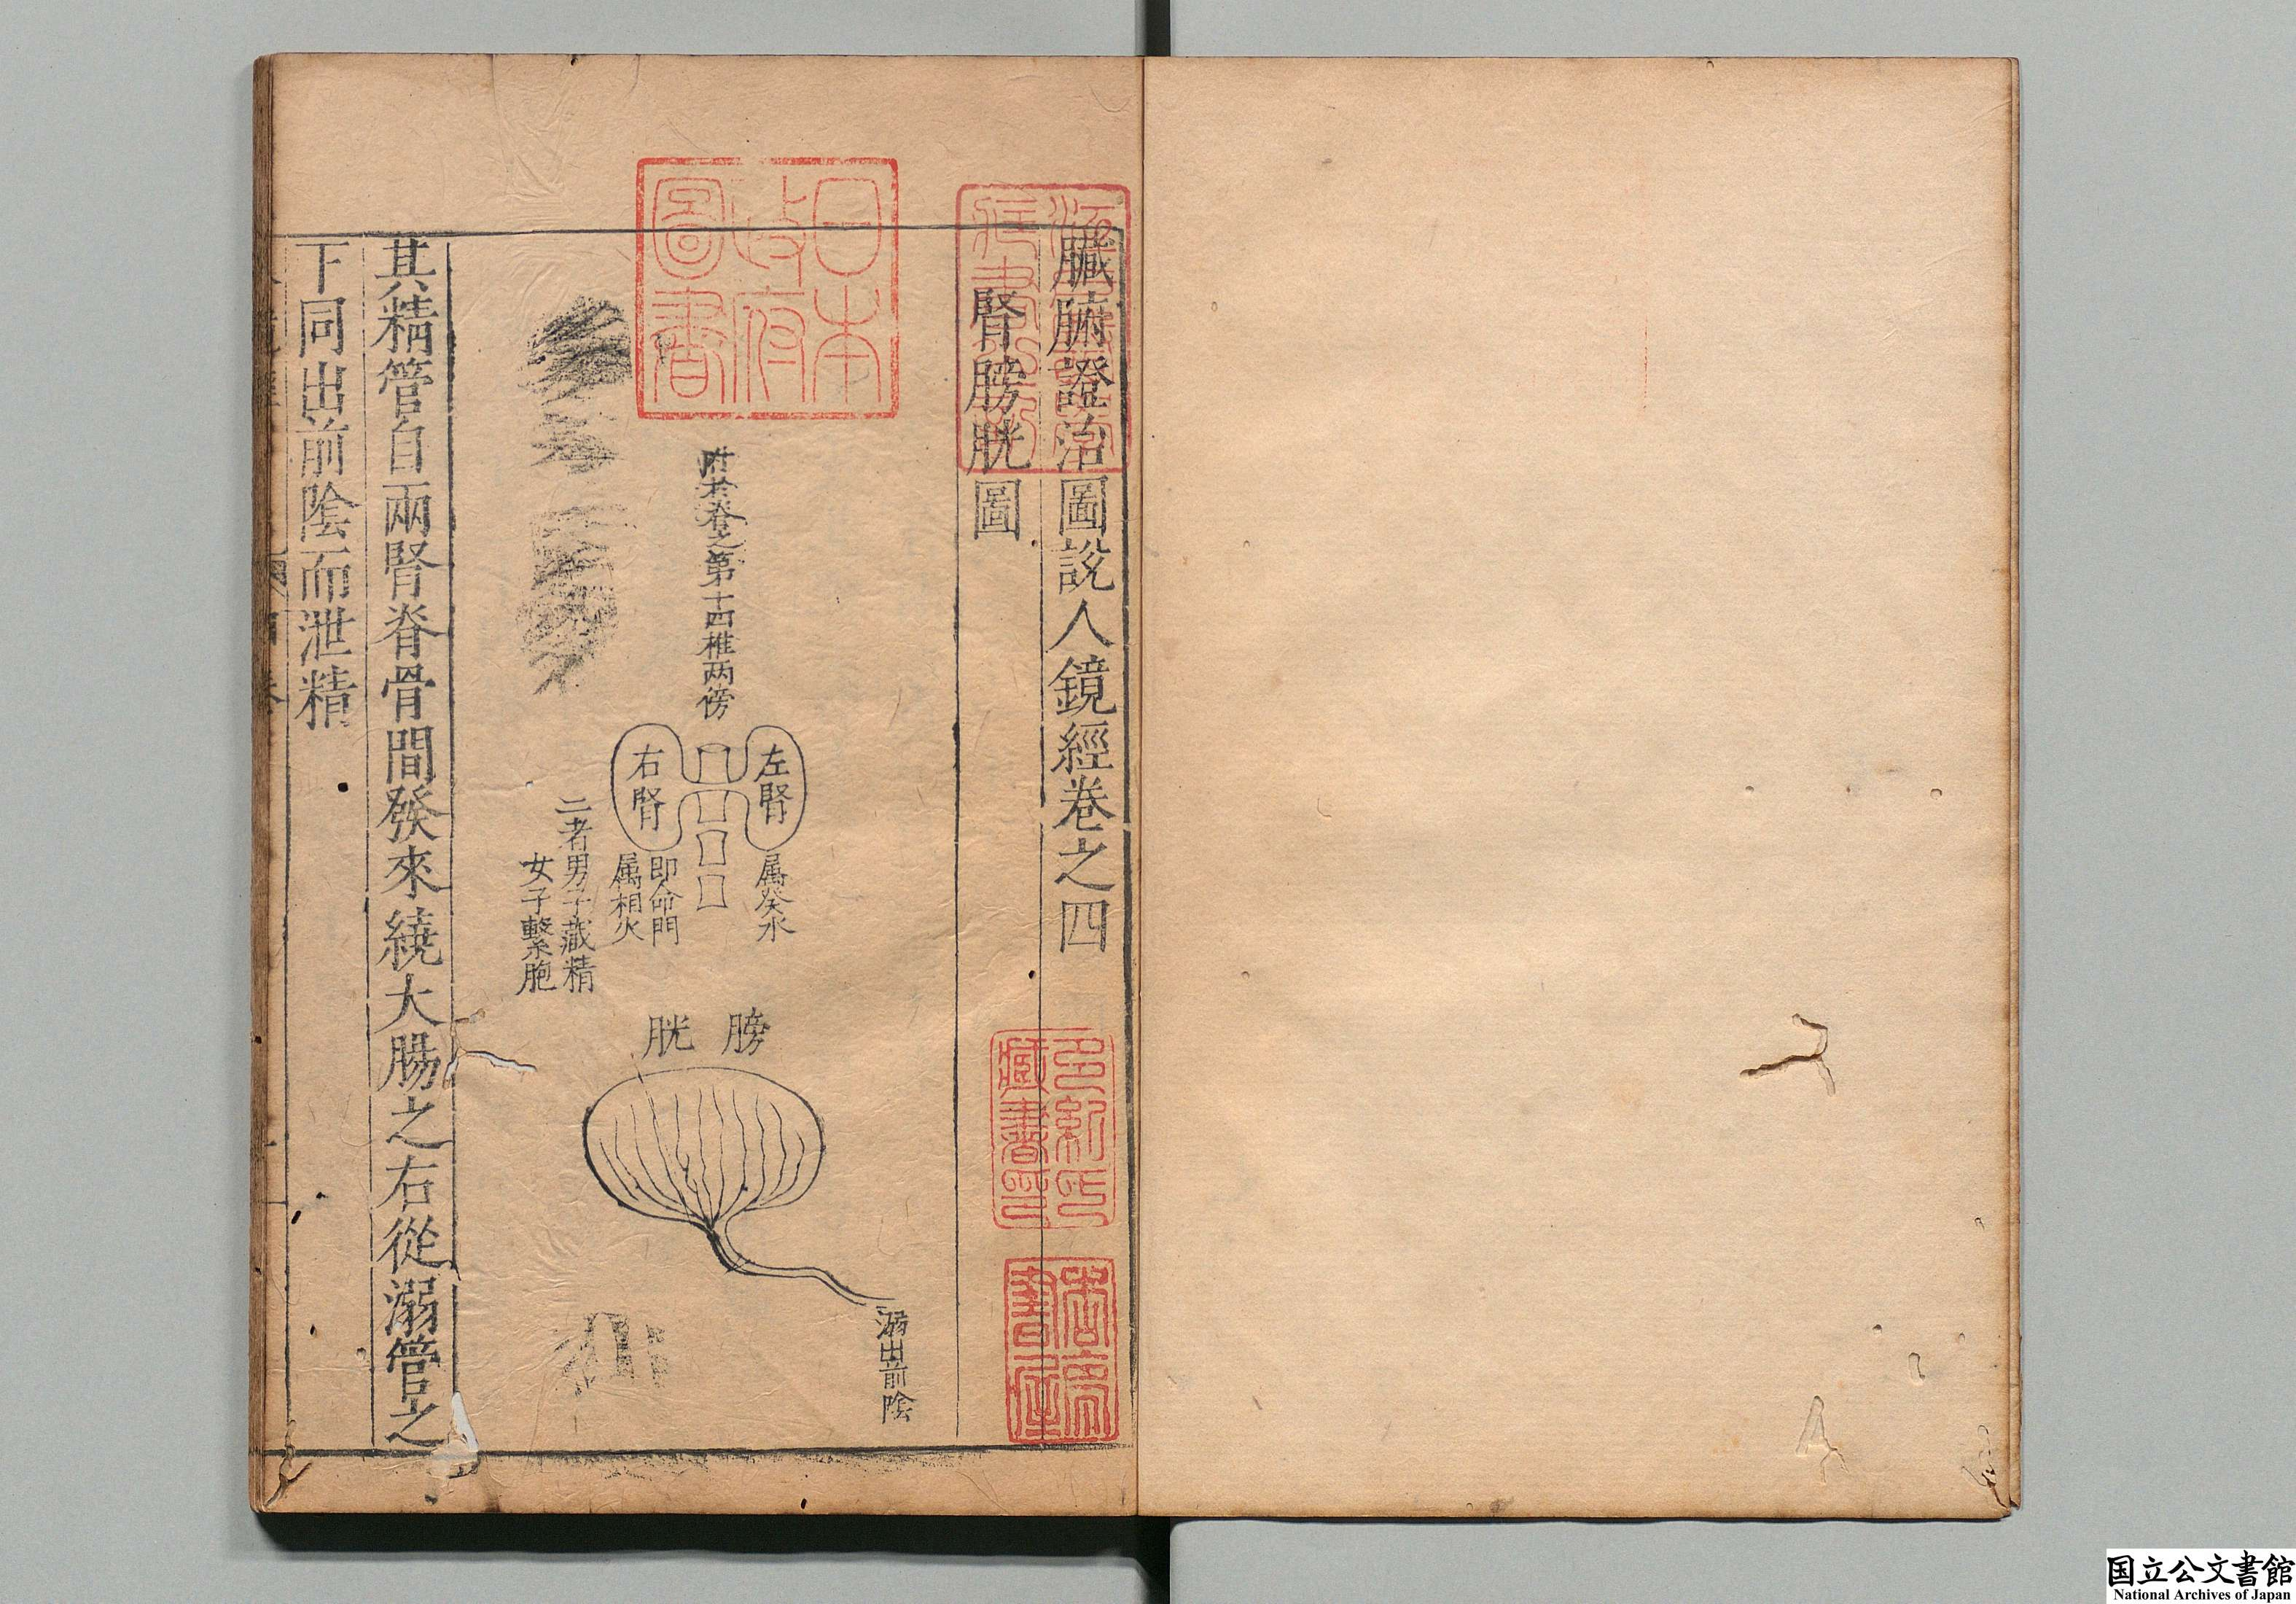 臟腑證治圖說人鏡經卷之四
腎膀胱圖
日本
政府
圖書
附於脊之第十四椎两傍
左腎
属癸水
右腎
即命門
属相火
二者男子藏精
女子繫胞
膀胱
溺出前陰
其精管自兩腎脊骨間發來繞大腸之右從溺管之
下同出前陰而泄精
藏書
書屋
国立公文書館
National Archives of Japan